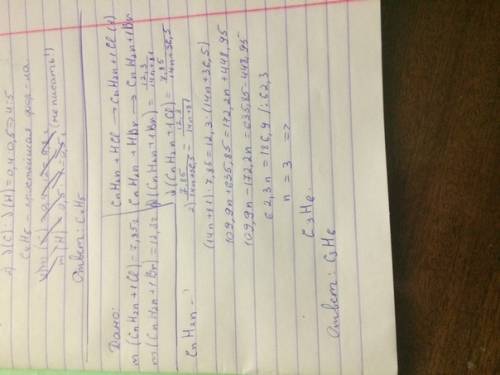 2) ν(C):ν(H)=0,4:0,5=4:5
C4H5 - простейшая фор-ла
(не писать!)
Ответ: C4H5
Дано:
m(CnH2n+1Cl)=7,85г
m(CnH2n+1Br)=12,3г
CnH2n - ?
CnH2n+HCl → CnH2n+1Cl
CnH2n+HBr → CnH2n+1Br
ν(CnH2n+1Br)=12,3/14n+81
ν(CnH2n+1Cl)=7,85/14n+36,5
2) 7,85/14n+36,5=12,3/14n+81
(14n+81)·7,85=12,3·(14n+36,5)
109,9n+635,85=172,2n+448,95
109,9n-172,2n=635,85-448,95
62,3n=186,9 |:62,3
n=3 =>
C3H6
Ответ: C3H6